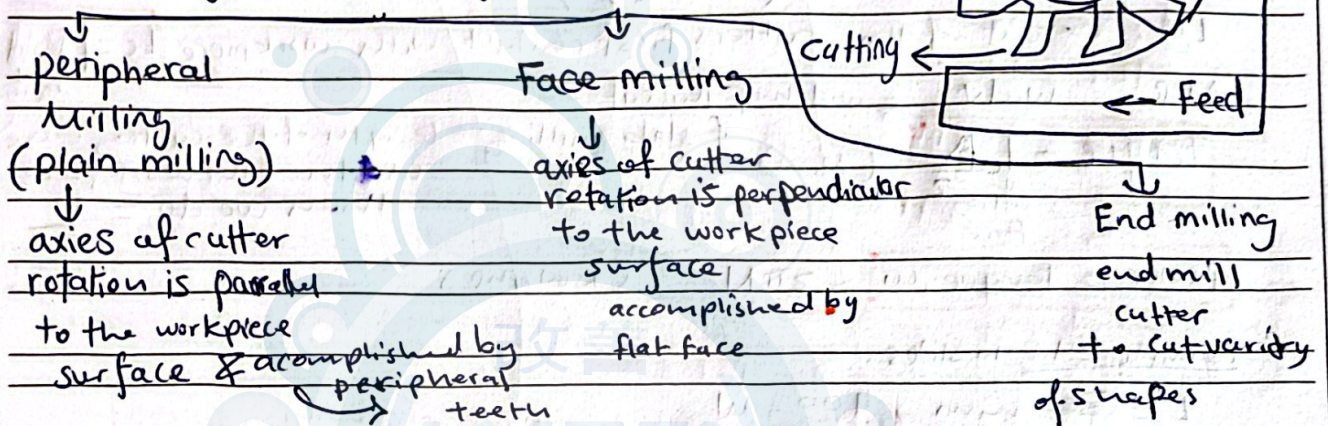 peripheral
Milling
(plain milling)
axies of cutter
rotation is parallel
to the workpiece
surface & acomplished by
peripheral
teeth
Face milling
axies of cutter
rotation is perpendicular
to the workpiece
surface
accomplished by
flat face
Cutting
Feed
End milling
end mill
cutter
to cut varidty
of shapes
改善